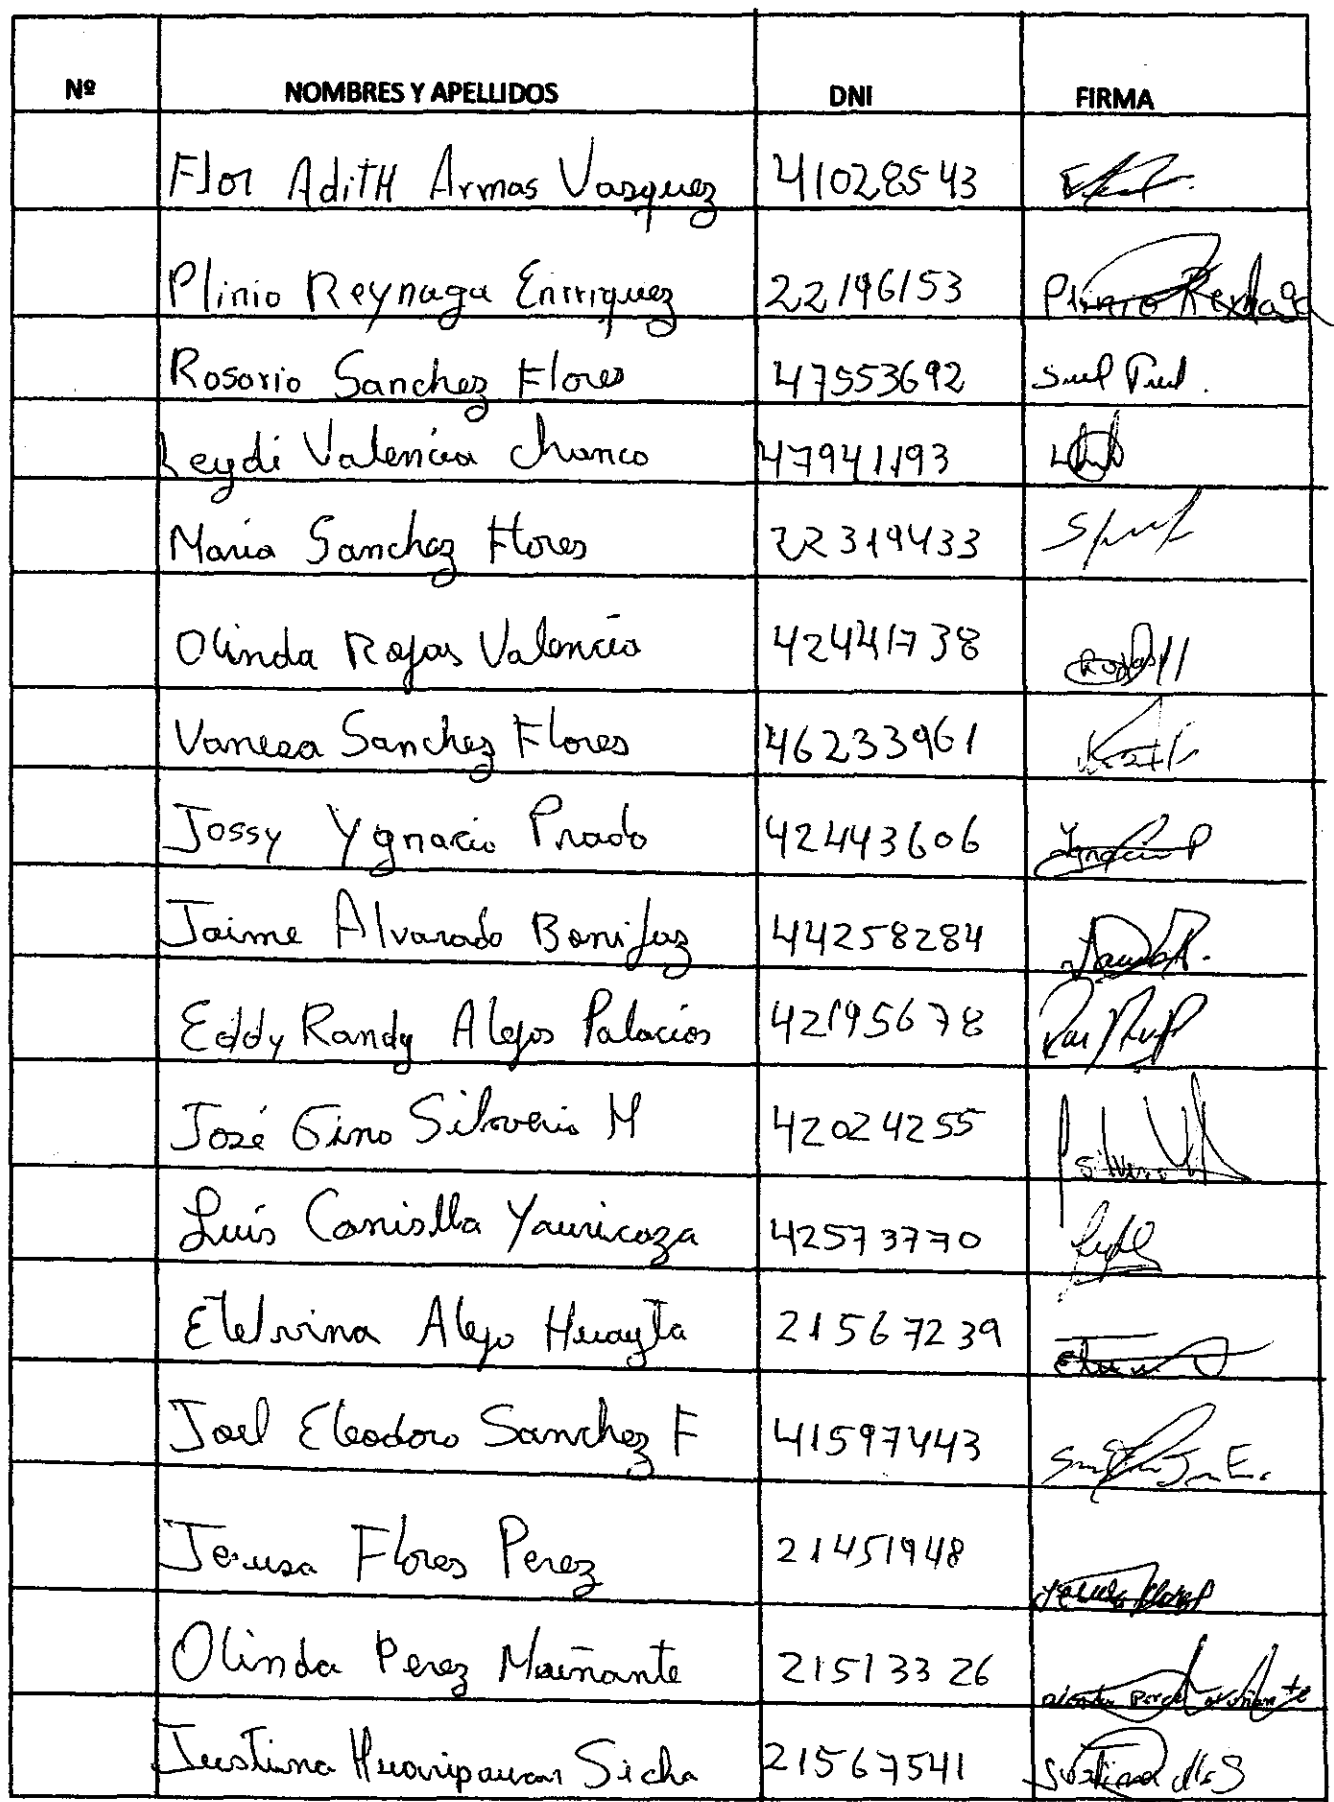 Nº NOMBRES Y APELLIDOS DNI FIRMA
Flor AditH Armas Vasquez 41028543
Plinio Reynaga Enrriquez 22196153 Plinio Reynaga
Rosario Sanchez Flores 47553692
Leydi Valencia Chanco 47941193
Maria Sanchez Flores 22319433
Olinda Rojas Valencia 42441738 Rojas
Vanesa Sanchez Flores 46233961
Jossy Ygnacio Prado 42443606 Ygnacio P
Jaime Alvarado Bonifaz 44258284
Eddy Randy Alejos Palacios 42195678
José Gino Silverio M 42024255
Luis Canislla Yauricaza 42573770
Etelvina Alejo Huayta 21567239
Joel Eleodoro Sanchez F 41597443
Jerusa Flores Perez 21451948
Olinda Perez Maiñante 21513326
Justina Huaripaucar Sicha 21567541 Justina H S